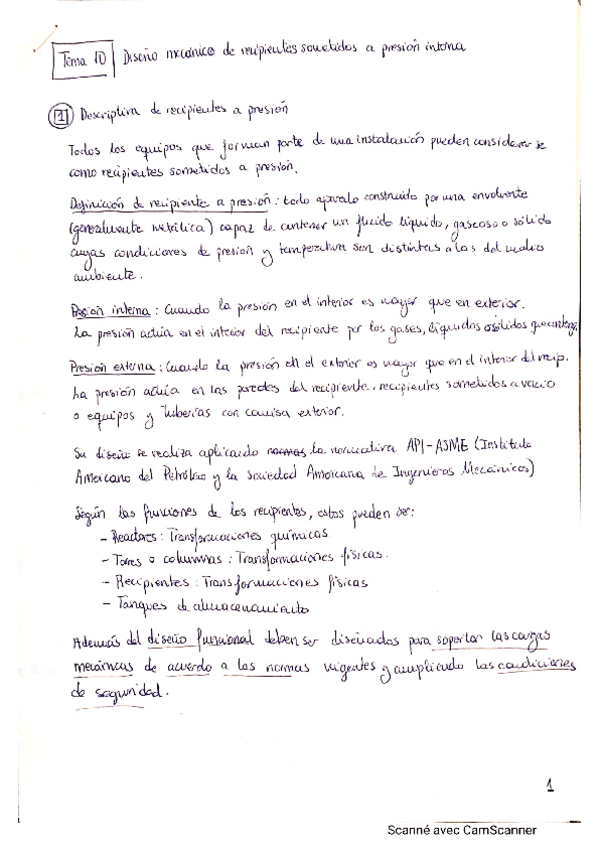 Tema 10 Diseño mecánico de recipientes sometidos a presión interna
1 Descriptiva de recipientes a presión
Todos los equipos que forman parte de una instalación pueden considerarse
como recipientes sometidos a presión.
Definición de recipiente a presión: todo aparato construido por una envolvente
(generalmente metálica) capaz de contener un fluido líquido, gaseoso o sólido
cuyas condiciones de presión y temperatura son distintas a las del medio
ambiente.
Presión interna: Cuando la presión en el interior es mayor que en exterior.
La presión actúa en el interior del recipiente por los gases, líquidos o sólidos que contenga.
Presión externa: Cuando la presión en el exterior es mayor que en el interior del recip.
La presión actúa en las paredes del recipiente. recipientes sometidos a vacío
o equipos y tuberías con camisa exterior.
Su diseño se realiza aplicando normas la normativa API-ASME (Instituto
Americano del Petróleo y la Sociedad Americana de Ingenieros Mecánicos)
Según las funciones de los recipientes, estos pueden ser:
- Reactores: Transformaciones químicas
- Torres o columnas: Transformaciones físicas.
- Recipientes: Transformaciones físicas
- Tanques de almacenamiento
Además del diseño funcional deben ser diseñados para soportar las cargas
mecánicas de acuerdo a las normas vigentes y cumpliendo las condiciones
de seguridad.
1
Scanné avec CamScanner